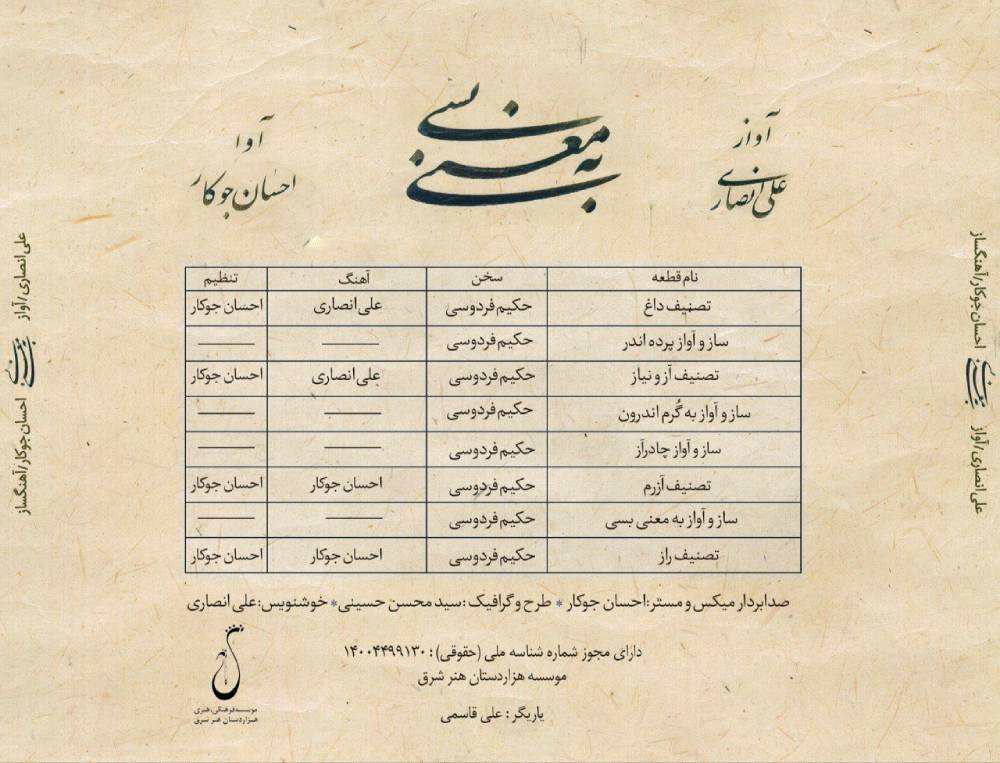 به معنی بسی
آواز
علی انصاری
آوا
احسان جوکار
نام قطعه سخن آهنگ تنظیم
تصنیف داغ حکیم فردوسی علی انصاری احسان جوکار
ساز و آواز پرده اندر حکیم فردوسی ——— ———
تصنیف آز و نیاز حکیم فردوسی علی انصاری احسان جوکار
ساز و آواز به گُرم اندرون حکیم فردوسی ——— ———
ساز و آواز چادرآز حکیم فردوسی ——— ———
تصنیف آزرم حکیم فردوسی احسان جوکار احسان جوکار
ساز و آواز به معنی بسی حکیم فردوسی ——— ———
تصنیف راز حکیم فردوسی احسان جوکار احسان جوکار
صدابردار میکس و مستر:احسان جوکار * طرح و گرافیک : سید محسن حسینی* خوشنویس: علی انصاری
دارای مجوز شماره شناسه ملی (حقوقی) : ۱۴۰۰۴۴۹۹۱۳۰
موسسه هزاردستان هنر شرق
یاریگر : علی قاسمی
موسسه فرهنگی، هنری
هزاردستان هنر شرق
احسان جوکار/آهنگساز به معنی بسی علی انصاری/آواز
علی انصاری/آواز به معنی بسی احسان جوکار/آهنگساز